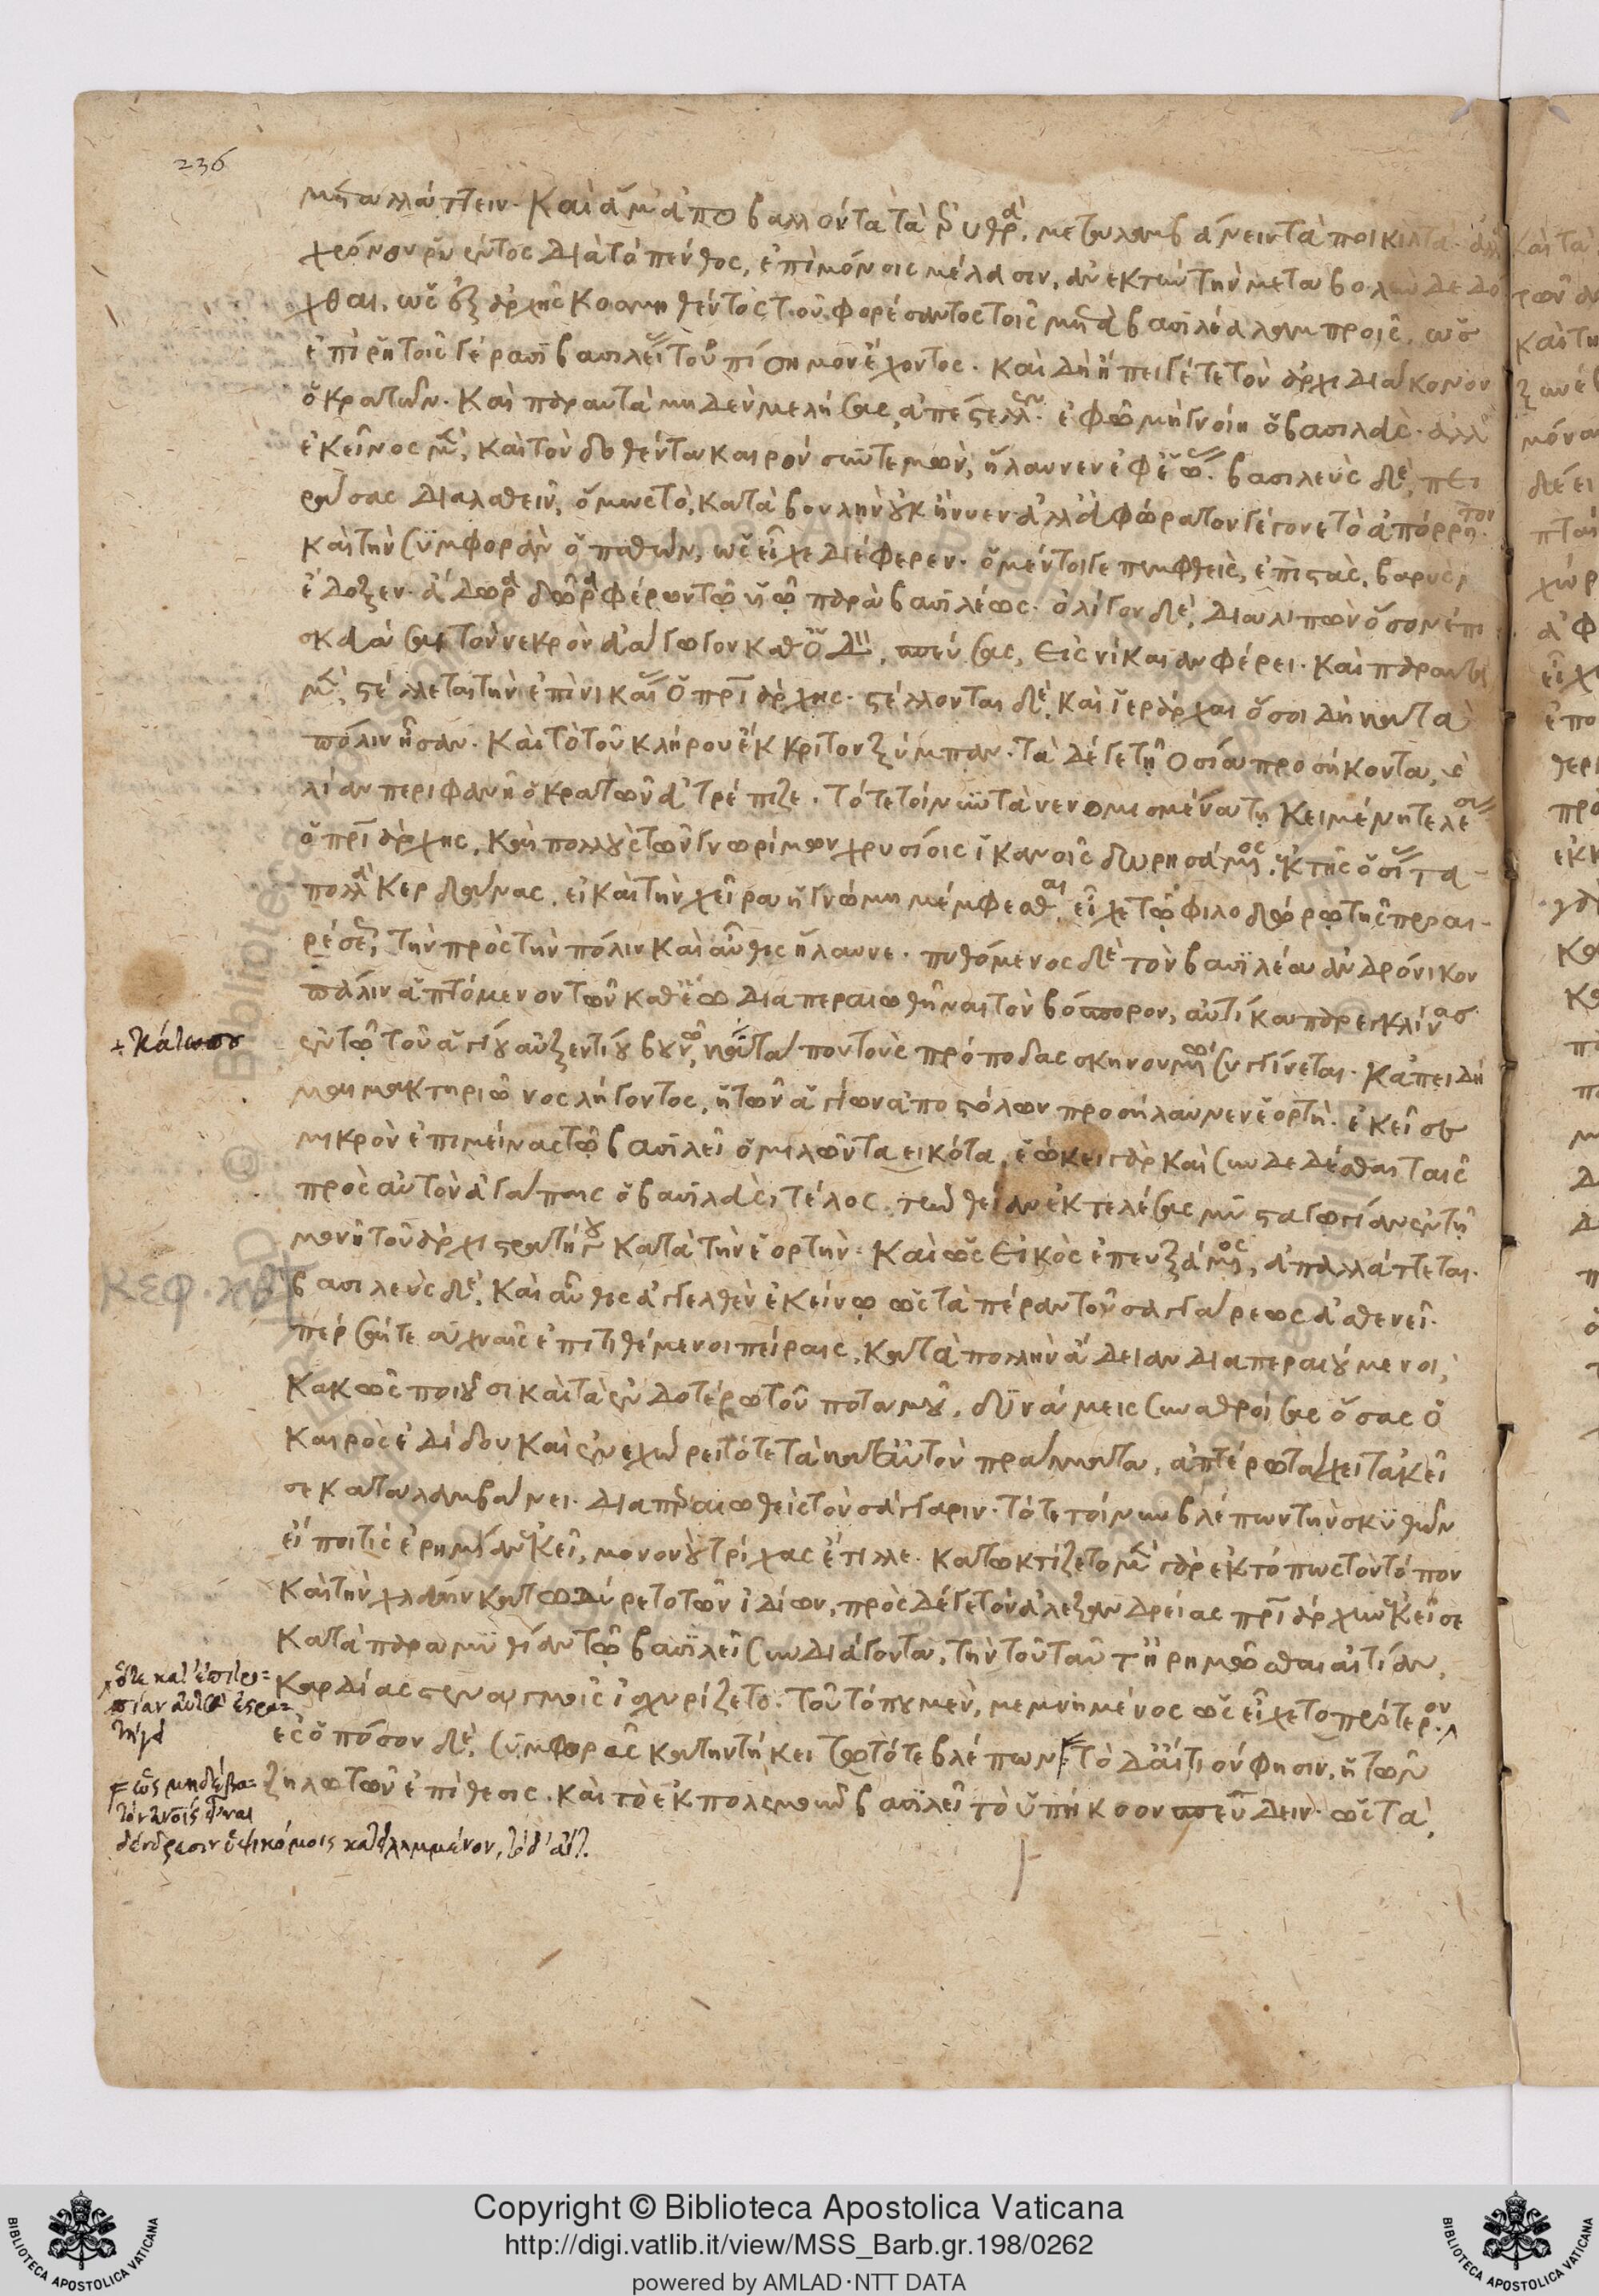 236
μεταλλάττειν. καὶ ἅμ' ἀποβαλλόντα τὰ ἐρυθρὰ, μεταλαμβάνειν τὰ ποικιλτά. ἀλλὰ
χρόνου ῥυέντος διὰ τὸ πένθος, ἐπιμόνοις μέλασιν, ἀνεκτέαν τὴν μεταβολὴν δεδό
χθαι. ὡς ἐξ ἀρχῆς κοσμηθέντος τοῦ φορέσαντος τοῖς μετὰ βασιλέα λαμπροῖς. ὡς
ἐπὶ ῥητοῖς γέρασι βασιλεῖ τοὐπίσημον ἔχοντος. καὶ δὴ ἠπείγετε τὸν ἀρχιδιάκονον
ὁ κρατῶν. καὶ παραυτὰ μηδὲν μελήσας ἀπέστελλεν. ἐφ' ᾧ μὴ γνοίη ὁ βασιλεύς. ἀλλ'
ἐκεῖνος μὲν, καὶ τὸν δοθέντα καιρὸν συντεμὼν, ἤλαυνεν ἐφ' ἑῷ. βασιλεὺς δὲ, πει
ράσας διαλαθεῖν, ὅμως τὸ κατὰ βουλὴν οὐκ ἤνυεν ἀλλὰ φώρατον γέγονε τὸ ἀπόρρητον.
καὶ τὴν συμφορὰν ὁ παθὼν, ὡς εἶχε διέφερεν. ὁ μέντοιγε πεμφθεὶς, ἐπιστὰς, βαρὺς
ἔδοξεν. ἄδωρα δῶρα φέρων τῷ υἱῷ παρὰ βασιλέως. ὀλίγον δὲ, διαλιπὼν ὅσον ἐπι
σκευάσαι τὸν νεκρὸν ἀγώγιμον καθ' ὁδὸν, σπεύσας, εἰς νίκαιαν φέρει. καὶ παραυτὰ
μὲν, στέλλεται τὴν ἐπὶ νίκαιαν ὁ πατριάρχης. στέλλονται δὲ, καὶ ἱεράρχαι ὅσοι δὴ κατὰ
πόλιν ἦσαν. καὶ τὸ τοῦ κλήρου ἔκκριτον ξύμπαν. τὰ δέ γε τῇ ὁσίᾳ προσήκοντα, καὶ
λίαν περιφανῆ ὁ κρατῶν εὐτρέπιζε. τότε τοίνυν τὰ νενομισμένα τῇ κειμένῃ τελέσας
ὁ πατριάρχης, καὶ πολλοὺς τῶν γνωρίμων χρυσίοις ἱκανοῖς δωρησάμενος, ἐκ τῆς ὁσίας τὰ
πολλὰ κερδάνας, εἰ καὶ τὴν χεῖρα ἡ γνώμη μέμφεσθαι εἶχε τῷ φιλοδώρῳ τῆς προαι-
ρέσεως, τὴν πρὸς τὴν πόλιν καὶ αὖθις ἤλαυνε. πυθόμενος δὲ τὸν βασιλέα ἀνδρόνικον
πάλιν ἁπτόμενον τῶν καθ' ἕω διαπεραιωθῆναι τὸν βόσπορον, αὐτίκα παρεκκλίνας
ἐν τῷ τοῦ ἁγίου αὐξεντίου βουνῷ, κατά που τοὺς πρόποδας σκηνουμένῳ συγγίνεται. κἀπειδὴ
μαιμακτηριῶνος λήγοντος, ἡ τῶν ἁγίων ἀποστόλων προσήλαυνεν ἑορτὴ. ἐκεῖσε
μικρὸν ἐπιμείνας τῷ βασιλεῖ ὁμιλῶν τὰ εἰκότα, ἐῴκει γὰρ καὶ συνδεδέσθαι ταῖς
πρὸς αὐτὸν ἀγάπαις ὁ βασιλεὺς, τέλος, τὴν θείαν ἐκτελέσας μυσταγωγίαν ἐν τῇ
μονῇ τοῦ ἀρχιστρατήγου κατὰ τὴν ἑορτὴν. καὶ ὡς εἰκὸς ἐπευξάμενος, ἀπαλλάττεται.
βασιλεὺς δὲ, καὶ αὖθις ἀγγελθὲν ἐκείνῳ ὡς τὰ πέραν τοῦ σαγγάρεως ἀσθενεῖ.
πέρσαι τε συχναῖς ἐπιτιθέμενοι πείραις, κατὰ πολλὴν ἄδειαν διαπεραιούμενοι,
κακῶς ποιοῦσι καὶ τὰ ἐνδοτέρω τοῦ ποταμοῦ. δυνάμεις συναθροίσας ὅσας ὁ
καιρὸς ἐδίδου καὶ ἐνεχώρει τότε τὰ κατ' αὐτὸν πράγματα, ἀπτέρῳ τάχει τἀκεῖ
σε καταλαμβάνει. διαπεραιωθεὶς τὸν σάγγαριν. τότε τοίνυν βλέπων τὴν σκυθῶν
εἴποι τις ἐρημίαν κεῖ, μονονοὺ τρίχας ἔτιλλε. κατῳκτίζετο μὲν γὰρ ἐκτόπως τὸν τόπον
καὶ τὴν χλεύην κατωδύρετο τῶν ἰδίων, πρὸς δέ γε τὸν ἀλεξανδρείας πατριάρχην κεῖσε
κατὰ παραμυθίαν τῷ βασιλεῖ συνδιάγοντα, τὴν τοῦ ταῦτ' ἠρημῶσθαι αἰτίαν,
καρδίας στεναγμοῖς ἰσχυρίζετο. τοῦτό που μὲν, μεμνημένος ὡς εἶχε τὸ πρότερον.
ἐς ὁπόσον δὲ, συμφορᾶς κατηντήκει τῷ τότε βλέπων. τὸ δ' αἴτιον φησὶν, ἡ τῶν
ζηλωτῶν ἐπίθεσις. καὶ τὸ ἐκπολεμοῦν βασιλεῖ τὸ ὑπήκοον σπεύδειν. ὡς τὰ,
κάτωσο
κεφ. κβ
ὅτε καὶ ἐπιτρο=
πίαν αὐτοῦ ἐστρα=
τήγει
ὡς μηδὲ βα=
τὸν τισὶς εἶναι
δένδρεσιν ὑψικόμοις κατειλημμένον, τὸ δ' αἴτ.
Copyright © Biblioteca Apostolica Vaticana
http://digi.vatlib.it/view/MSS_Barb.gr.198/0262
powered by AMLAD·NTT DATA
BIBLIOTECA APOSTOLICA VATICANA
BIBLIOTECA APOSTOLICA VATICANA